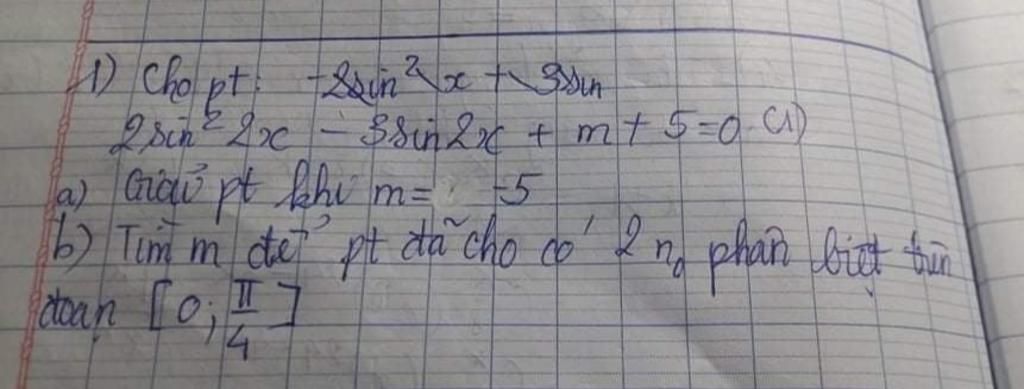 1) Cho pt: -2sin² x + 3sin
2sin² 2x - 3sin2x + m + 5 = 0 (1)
a) Giải pt khi m = -5
b) Tìm m để pt đã cho có 2 n₀ phân biệt trên
đoạn [0; π/4]